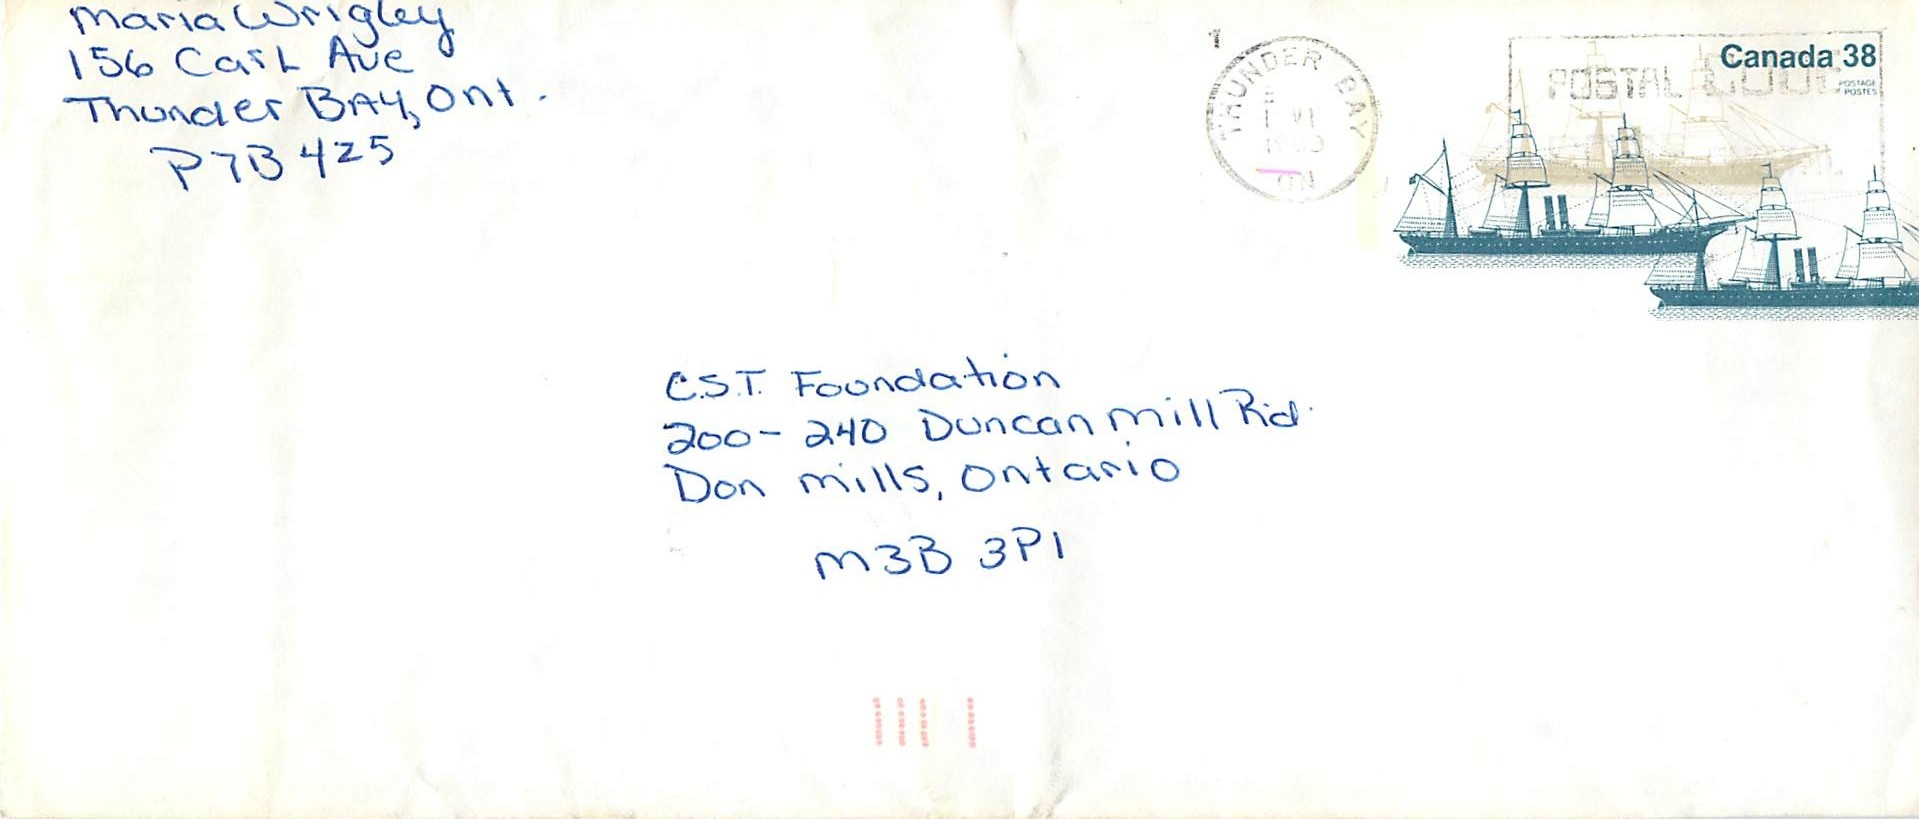 Maria Wrigley
156 Cash Ave
Thunder BAY, Ont.
P7B 4Z5
THUNDER BAY
VI
ON
POSTAL CODE
Canada 38
POSTAGE
POSTES
C.S.T. Foundation
200-240 Duncan Mill Rd.
Don Mills, Ontario
M3B 3P1